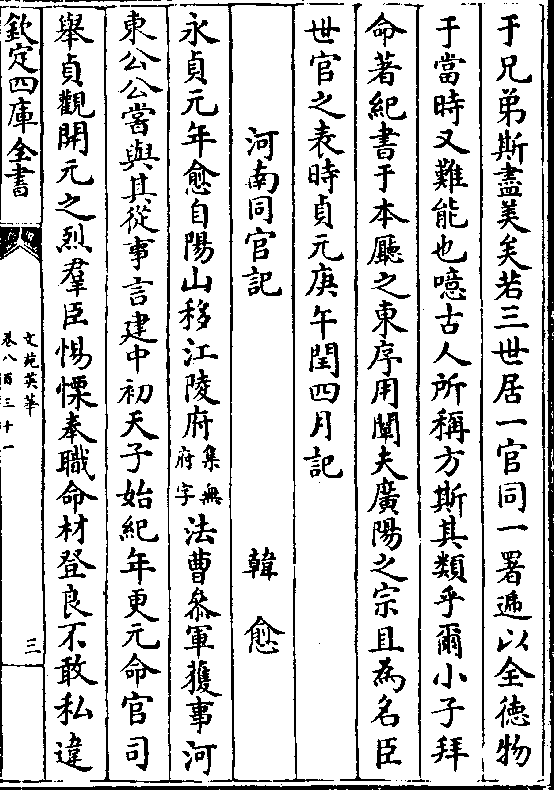 于兄弟斯盡美矣若三世居一官同一署遞以全徳物
于當時又難能也噫古人所稱方斯其類乎爾小子拜
命著紀書于本廳之東序用闡夫廣陽之宗且為名臣
世官之表時貞元庚午閏四月記
河南同官記 韓愈
永貞元年愈自陽山移江陵府集無府字法曹叅軍獲事河
東公公嘗與其從事言建中初天子始紀年更元命官司
舉貞觀開元之烈羣臣惕慄奉職命材登良不敢私違
欽定四庫全書
文苑英華
卷八百三十一
三